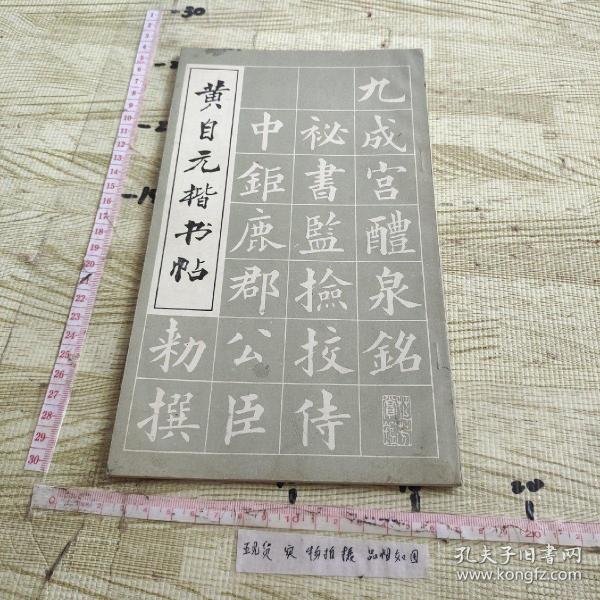 黄自元楷书帖
九成宫醴泉銘
祕書監撿挍侍
中鉅鹿郡公臣
勅撰
现货 实物拍摄 品相如图
孔夫子旧书网
www.kongfz.com